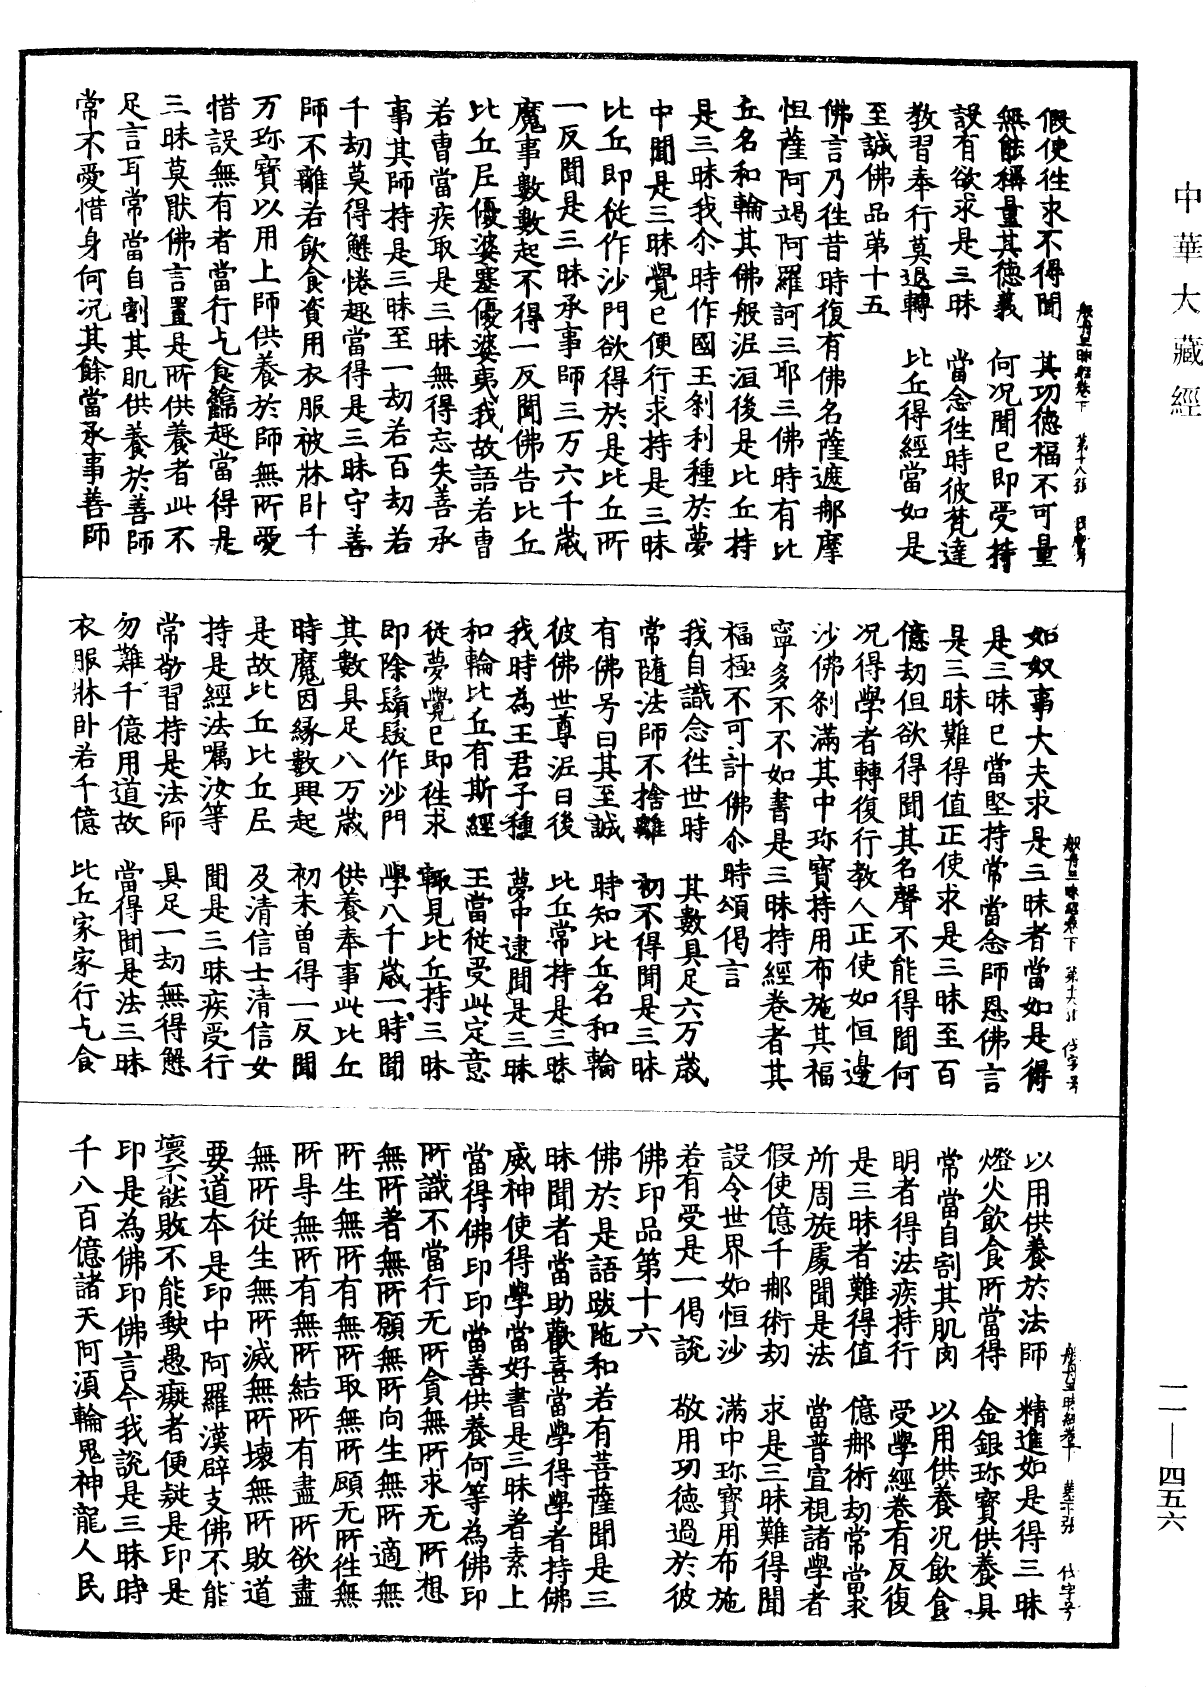 中華大藏經
假使往求不得聞　其功德福不可量
無能稱量其德義　何況聞已即受持
設有欲求是三昧　當念往時彼梵達
教習奉行莫退轉　比丘得經當如是
至誠佛品第十五
佛言乃往昔時復有佛名薩遮那摩
怛薩阿竭阿羅訶三耶三佛時有比
丘名和輪其佛般泥洹後是比丘持
是三昧我尒時作國王剎利種於夢
中聞是三昧覺已便行求持是三昧
比丘即從作沙門欲得於是比丘所
一反聞是三昧承事師三万六千歲
魔事數數起不得一反聞佛告比丘
比丘尼優婆塞優婆夷我故語若曹
若曹當疾取是三昧無得忘失善承
事其師持是三昧至一劫若百劫若
千劫莫得懈惓趣當得是三昧守善
師不離若飲食資用衣服被牀卧千
万珎寶以用上師供養於師無所愛
惜設無有者當行乞食饟趣當得是
三昧莫猒佛言置是所供養者此不
足言耳常當自割其肌供養於善師
常不愛惜身何況其餘當承事善師
般舟三昧經卷下　第十八張
如奴事大夫求是三昧者當如是得
是三昧已當堅持常當念師恩佛言
是三昧難得值正使求是三昧至百
億劫但欲得聞其名聲不能得聞何
況得學者轉復行教人正使如恒邊
沙佛剎滿其中珎寶持用布施其福
寧多不不如書是三昧持經卷者其
福極不可計佛尒時頌偈言
我自識念往世時　其數具足六万歲
常隨法師不捨離　初不得聞是三昧
有佛号曰其至誠　時知比丘名和輪
彼佛世尊泥曰後　比丘常持是三昧
我時為王君子種　夢中逮聞是三昧
和輪比丘有斯經　王當從受此定意
從夢覺已即往求　輒見比丘持三昧
即除鬚髮作沙門　學八千歲一時聞
其數具足八万歲　供養奉事此比丘
時魔因緣數興起　初未曾得一反聞
是故比丘比丘尼　及清信士清信女
持是經法囑汝等　聞是三昧疾受行
常敬習持是法師　具足一劫無得懈
勿難千億用道故　當得聞是法三昧
衣服牀卧若千億　比丘家家行乞食
般舟三昧經卷下
以用供養於法師　精進如是得三昧
燈火飲食所當得　金銀珎寶供養具
常當自割其肌肉　以用供養況飲食
明者得法疾持行　受學經卷有反復
是三昧者難得值　億那術劫常當求
所周旋處聞是法　當普宣視諸學者
假使億千那術劫　求是三昧難得聞
設令世界如恒沙　滿中珎寶用布施
若有受是一偈說　敬用功德過於彼
佛印品第十六
佛於是語颰陁和若有菩薩聞是三
昧聞者當助歡喜當學得學者持佛
威神使得學當好書是三昧著素上
當得佛印印當善供養何等為佛印
所識不當行无所貪無所求无所想
無所著無所願無所向生無所適無
所生無所有無所取無所顧无所往無
所㝵無所有無所結所有盡所欲盡
無所從生無所滅無所壞無所敗道
要道本是印中阿羅漢辟支佛不能
壞不能敗不能缺愚癡者便疑是印是
印是為佛印佛言今我說是三昧時
千八百億諸天阿湏輪鬼神龍人民
一一—四五六